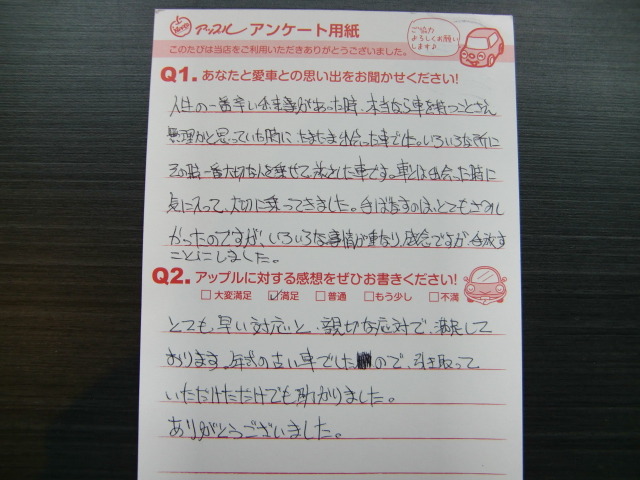 アップル アンケート用紙
ご協力
よろしくお願い
します♪
このたびは当店をご利用いただきありがとうございました。
Q1. あなたと愛車との思い出をお聞かせください!
人生の一番辛い出来事があった時、本当なら車を持つことさえ
無理かと思っていた時に、たまたま出会った車でした。いろいろな所に
その時、一番大切な人を乗せて 車です。車とは出会った時に
気に入って、大切に乗ってきました。手ばなすのは、とても
かったのですが、いろいろな事情が重なり、残念ですが、手放す
ことにしました。
Q2. アップルに対する感想をぜひお書きください!
□大変満足 ☑満足 □普通 □もう少し □不満
とても、早い対応と、親切な応対で、満足して
おります。年式の古い車でしたので、引き取って
いただけただけでも助かりました。
ありがとうございました。